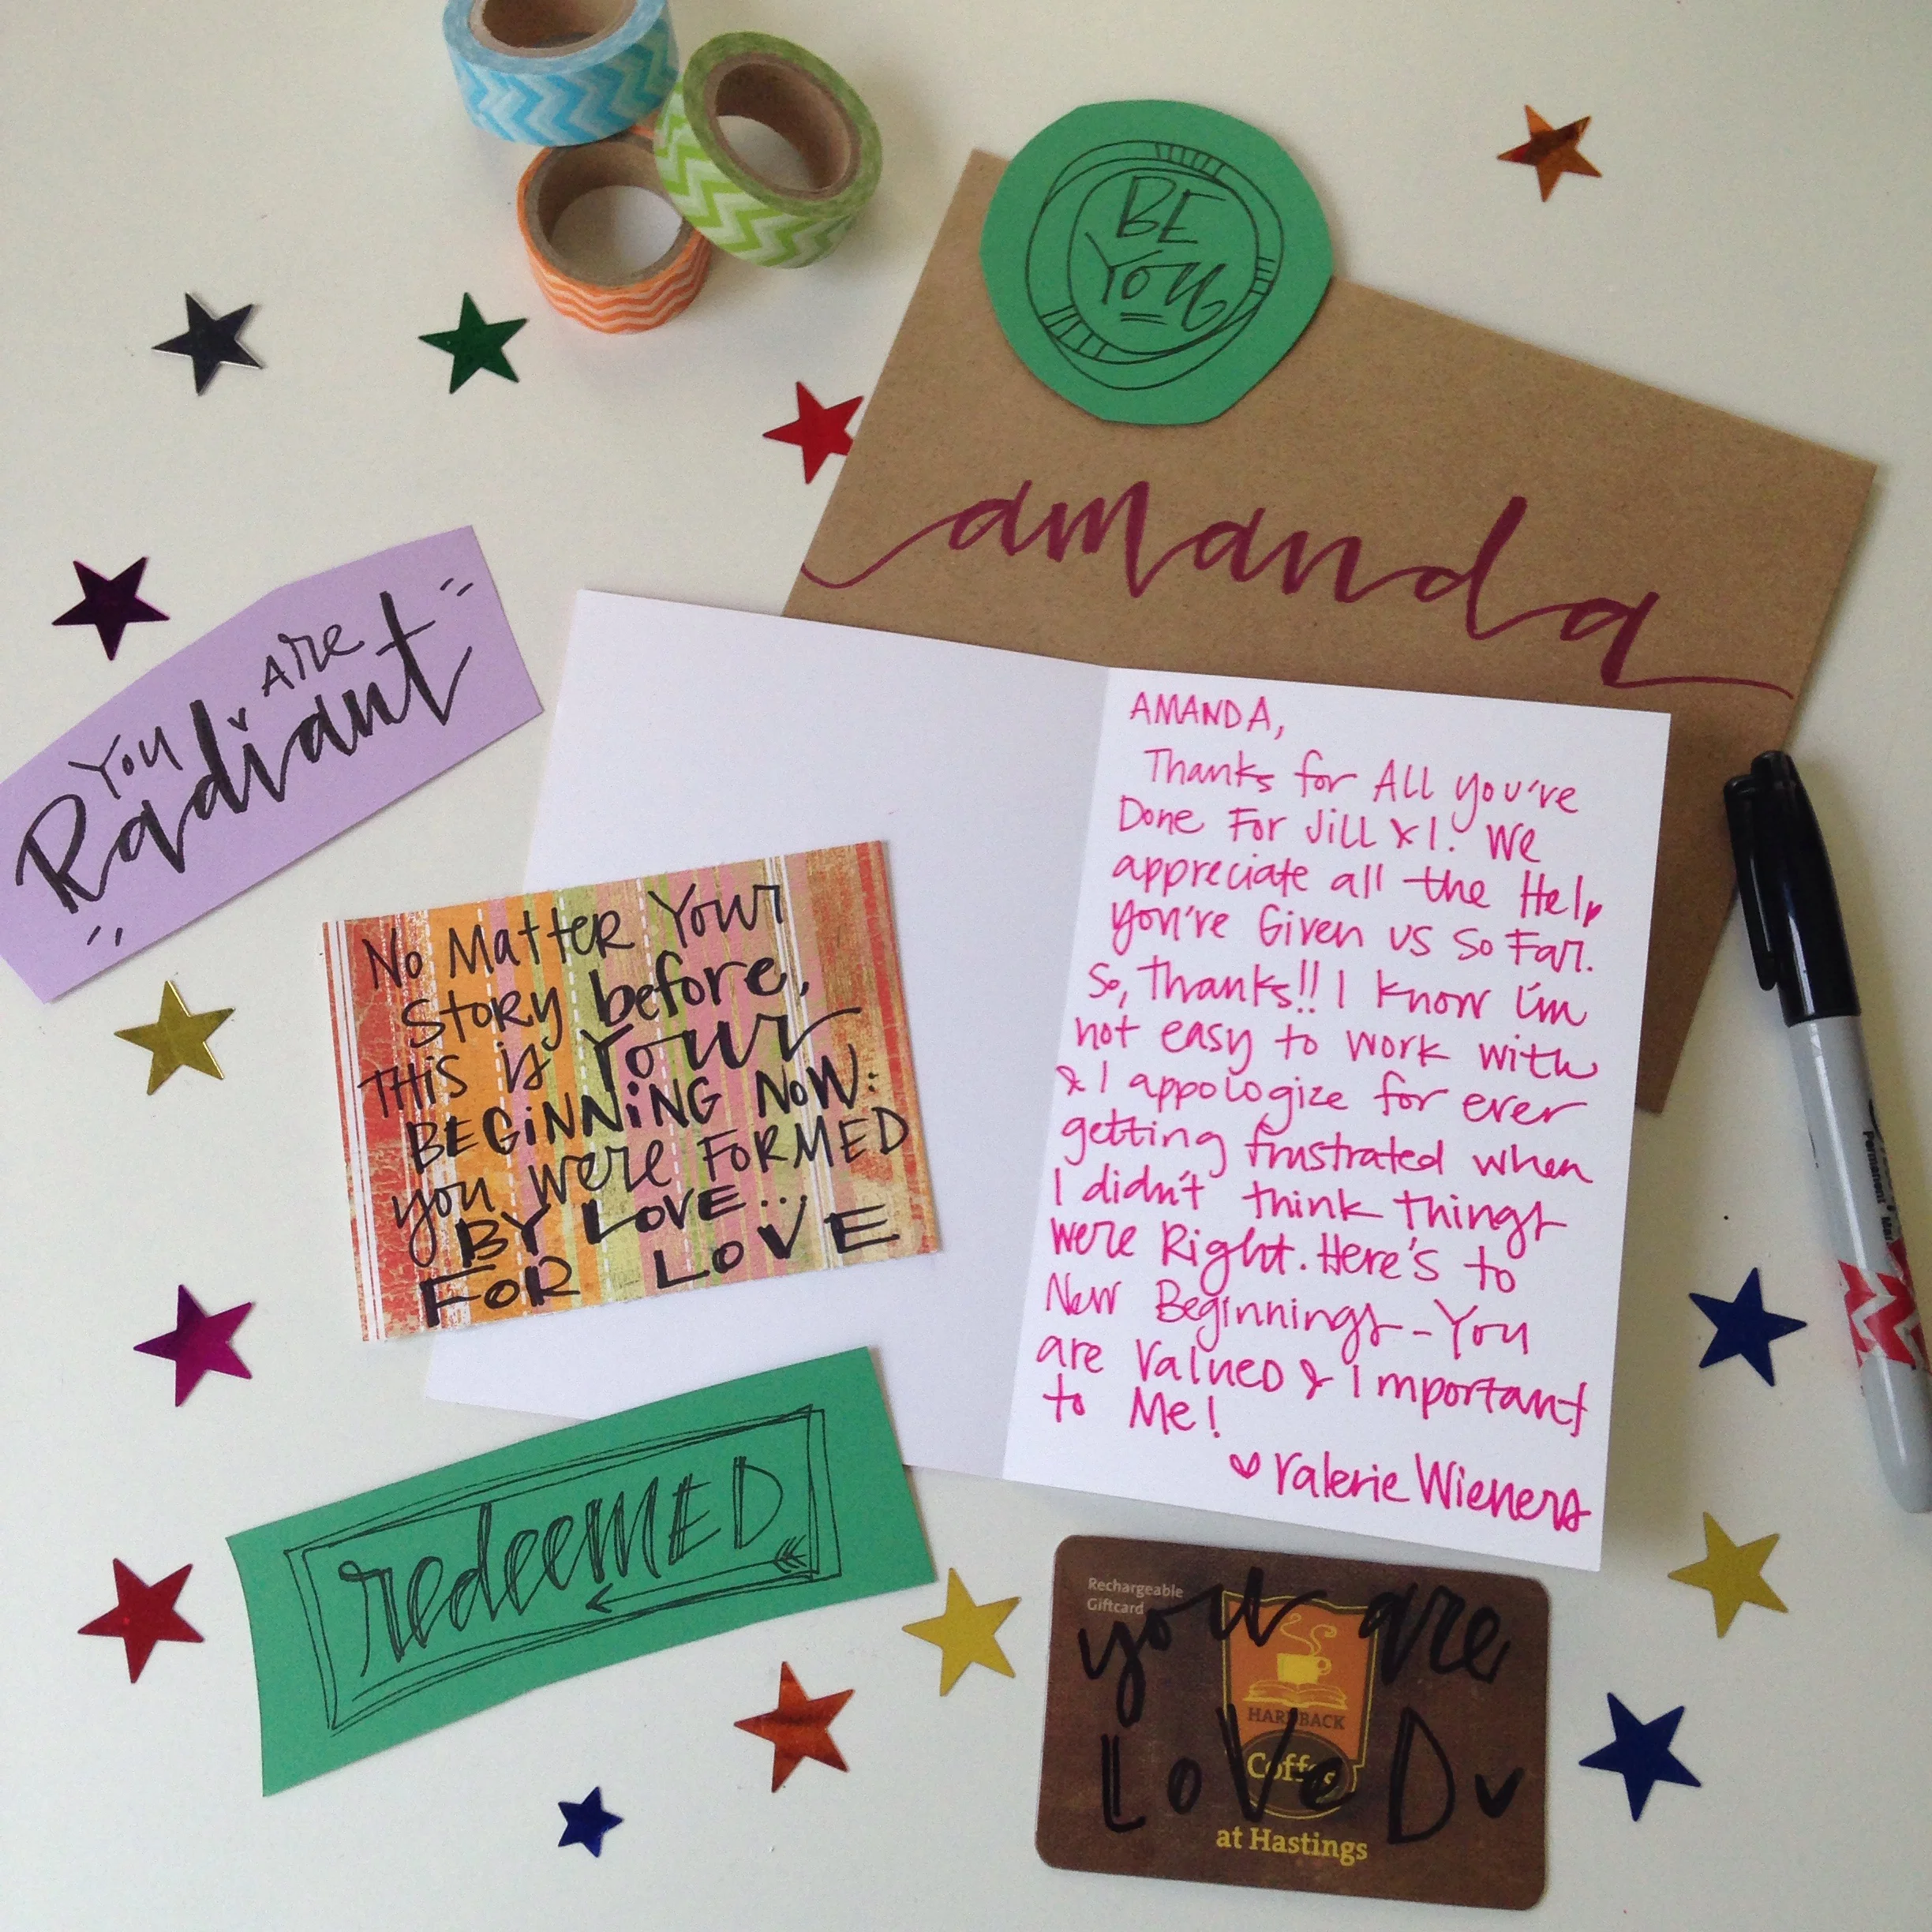 BE
You
amanda
You Are
Radiant
AMANDA,
Thanks for All you've
Done For Jill & I. We
appreciate all the Help
you've Given us so Far.
So, Thanks!! I know I'm
not easy to work with
& I appologize for ever
getting frustrated when
I didn't think things
were Right. Here's to
New Beginnings - You
are Valued & Important
to Me!
Valerie Wieners
No Matter Your
Story before,
THIS is Your
BEGINNING NOW:
you were FORMED
BY LOVE...
FOR LOVE
redeeMED
Rechargeable
Giftcard
you are
LoVeD
HARDBACK
Coffee
at Hastings
Permanent